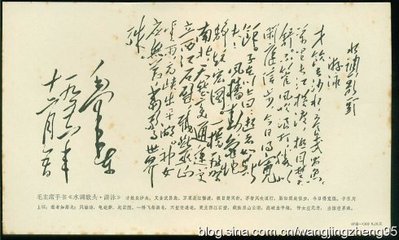 水调歌头
游泳
才饮长沙水又食武昌鱼
万里长江横渡极目楚天
舒不管风吹浪打胜似
闲庭信步今日得宽
馀子在川上曰逝者如斯
夫风樯动龟蛇静
起宏图一桥飞架
南北天堑变通途更
立西江石壁截断巫
山云雨高峡出平湖神女
应无恙当惊世界
殊
毛泽东
一九五六年
十二月五日
毛主席手书《水调歌头·游泳》 才饮长沙水，又食武昌鱼。万里长江横渡，极目楚天舒。不管风吹浪打，胜似闲庭信步，今日得宽馀。子在川
上曰：逝者如斯夫！ 风樯动，龟蛇静，起宏图。一桥飞架南北，天堑变通途。更立西江石壁，截断巫山云雨，高峡出平湖。神女应无恙，当惊世界殊。
http://blog.sina.com.cn/wangjingzheng95